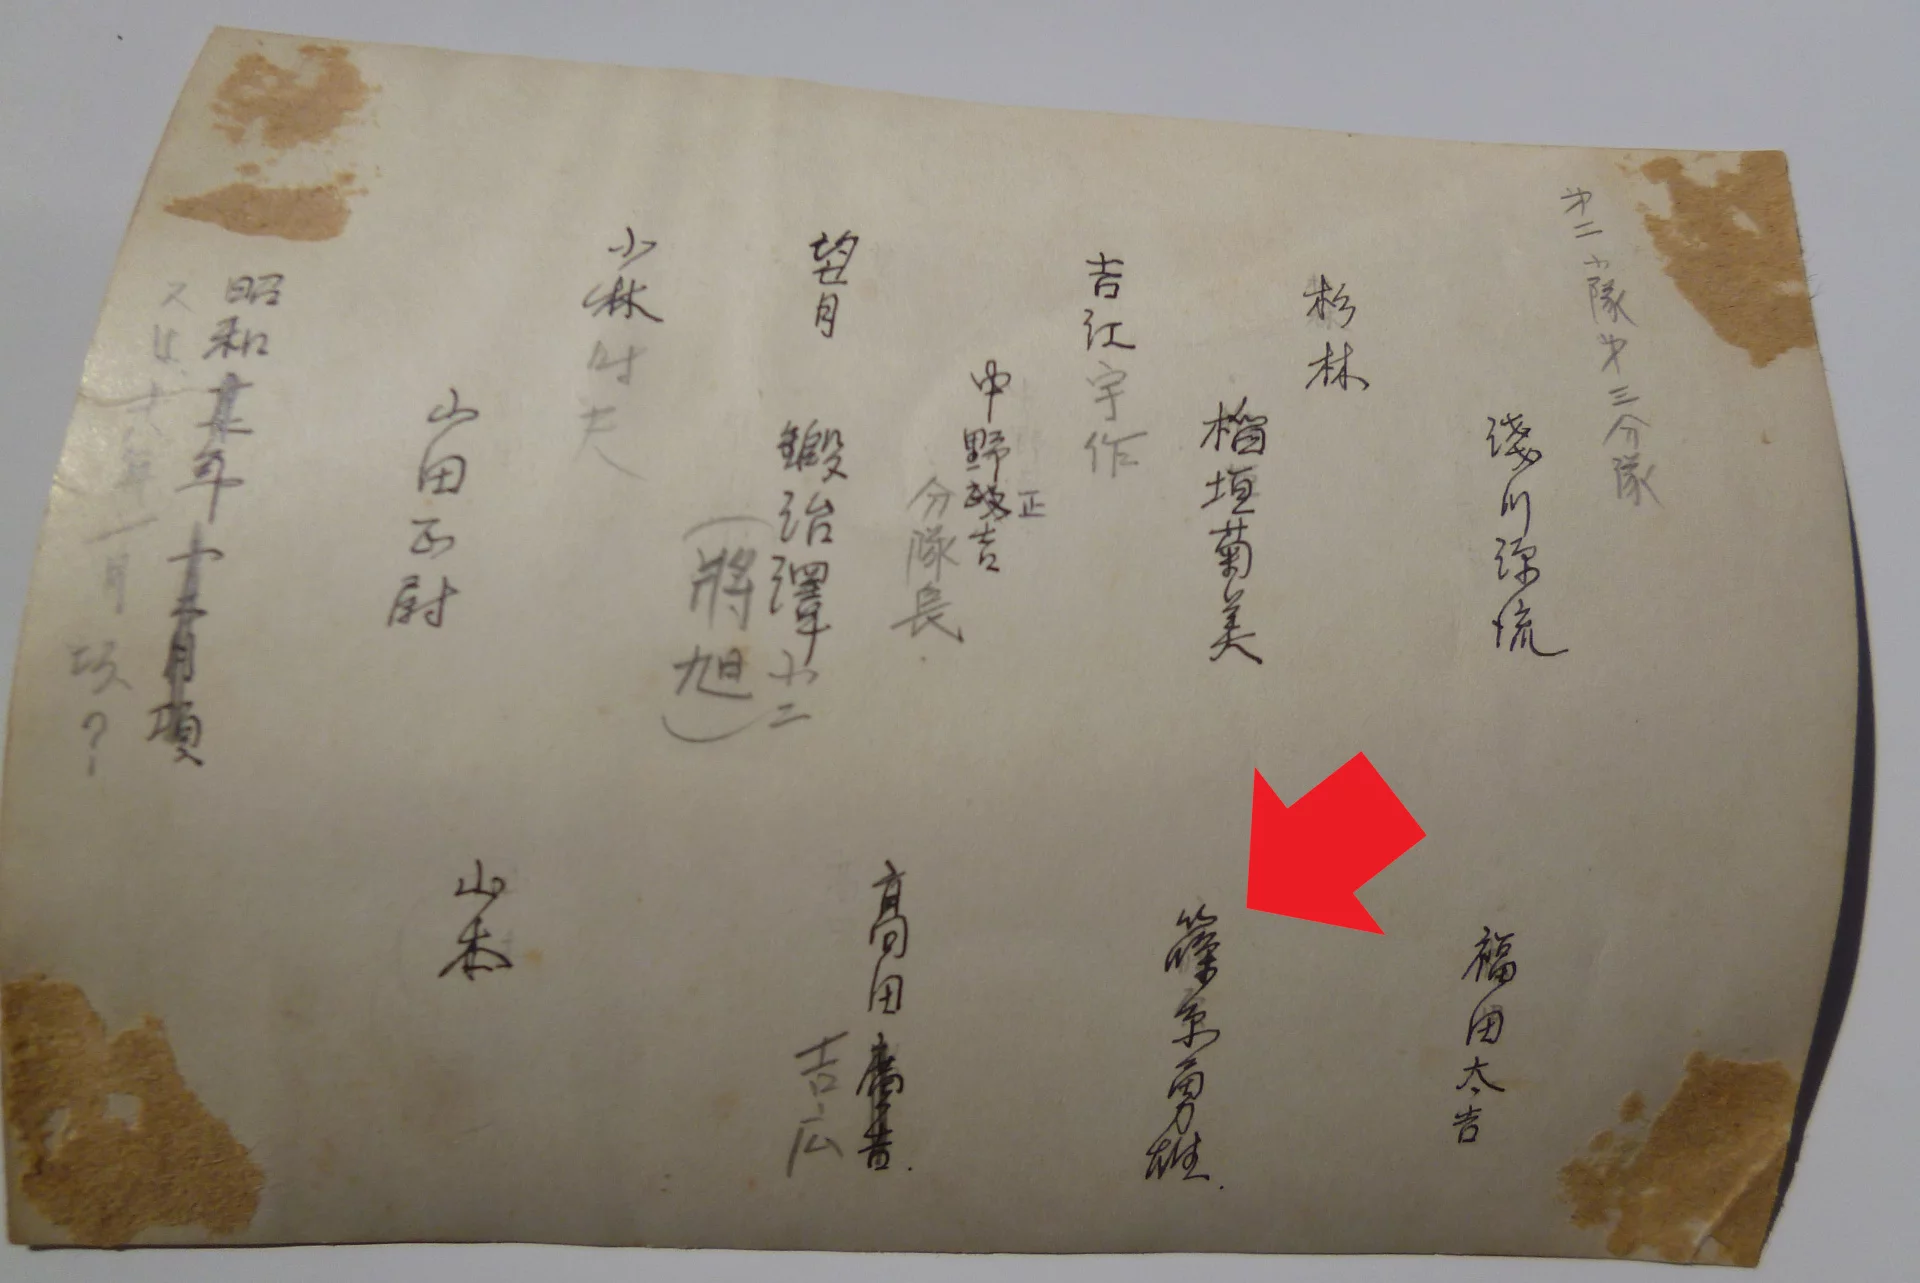 第二小隊第三分隊
淺川源流
杉林
稲垣菊美
吉江宇作
中野政吉
正
分隊長
望月
鍛治澤小二
(將旭)
小林
夫
山田正尉
昭和
年十二月項
十八年一月頃?
福田太吉
篠原勇雄.
高田
吉広
山本